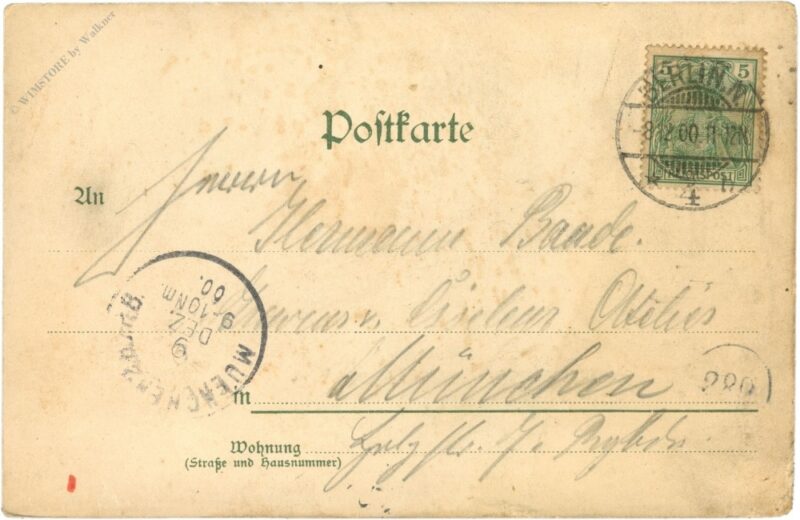 © WIMSTORE by Walkner
5 5
BERLIN, N.
-8.12.00.11-12V.
4
REICHSPOST
Postkarte
An Herrn
Hermann Baade.
Atelier
MUENCHEN
9 DEZ.
9-10 Nm.
00.
in München
220
Wohnung
(Straße und Hausnummer)